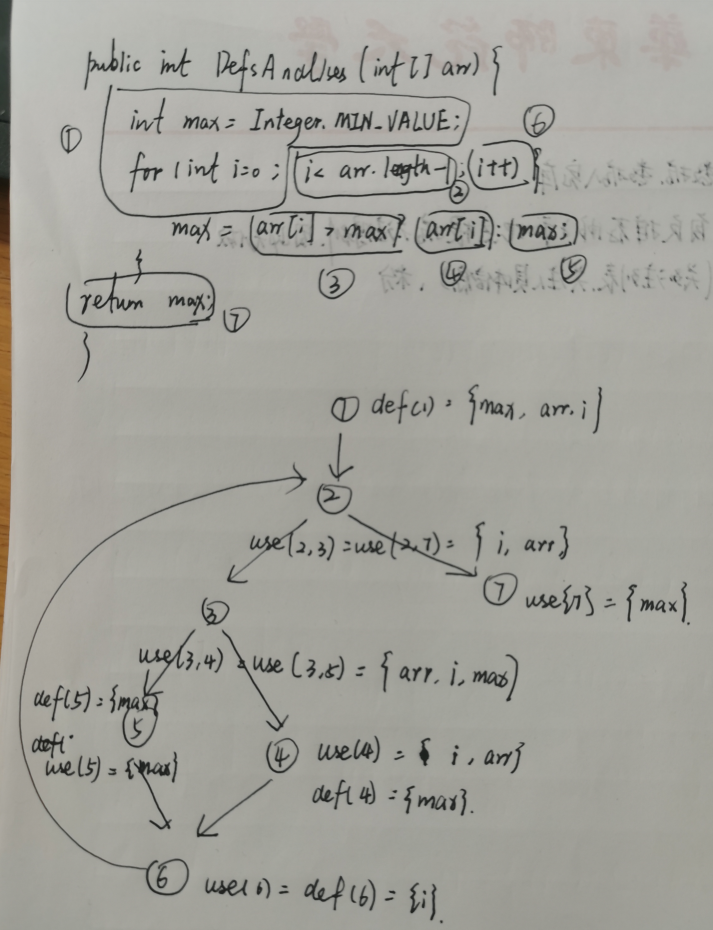 public int DefsAnalises (int [] arr) {
① int max = Integer. MIN_VALUE; ⑥
for (int i=0; i< arr. length-1; ② (i++) {
max = arr[i] > max? arr[i] : max;
③ ④ ⑤
}
return max; ⑦
}
① def(1) = {max, arr. i}
②
use(2,3) = use(2,7) = { i, arr}
③ ⑦ use{7} = {max}.
use(3,4) = use (3,5) = { arr, i, max}
def(5) = {max}
⑤
def(
use(5) = {max}
④ use(4) = { i, arr}
def(4) = {max}.
⑥ use(6) = def(6) = {i}.